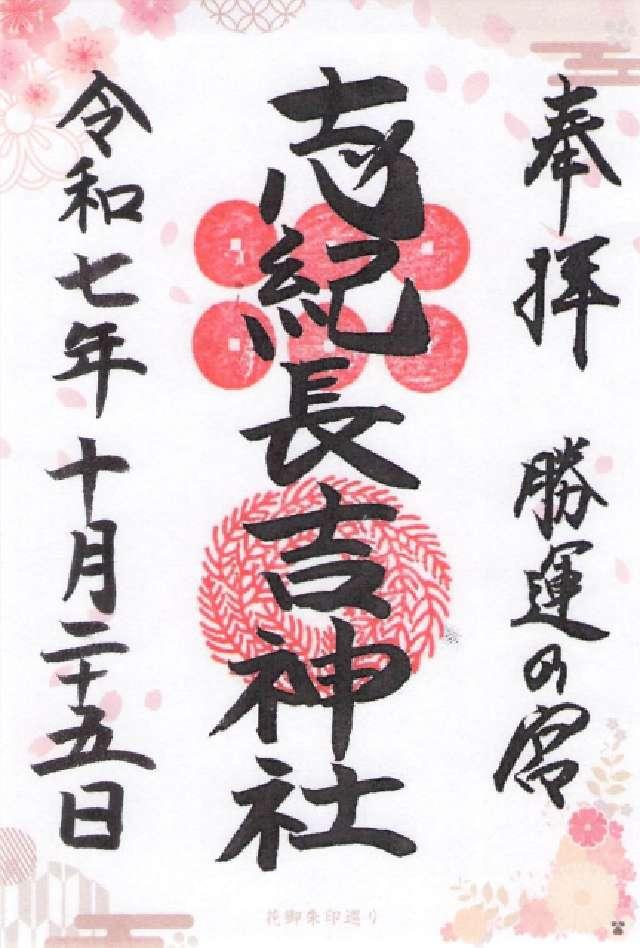 奉拝 勝運の宮
志紀長吉神社
令和七年十月二十五日
花御朱印巡り